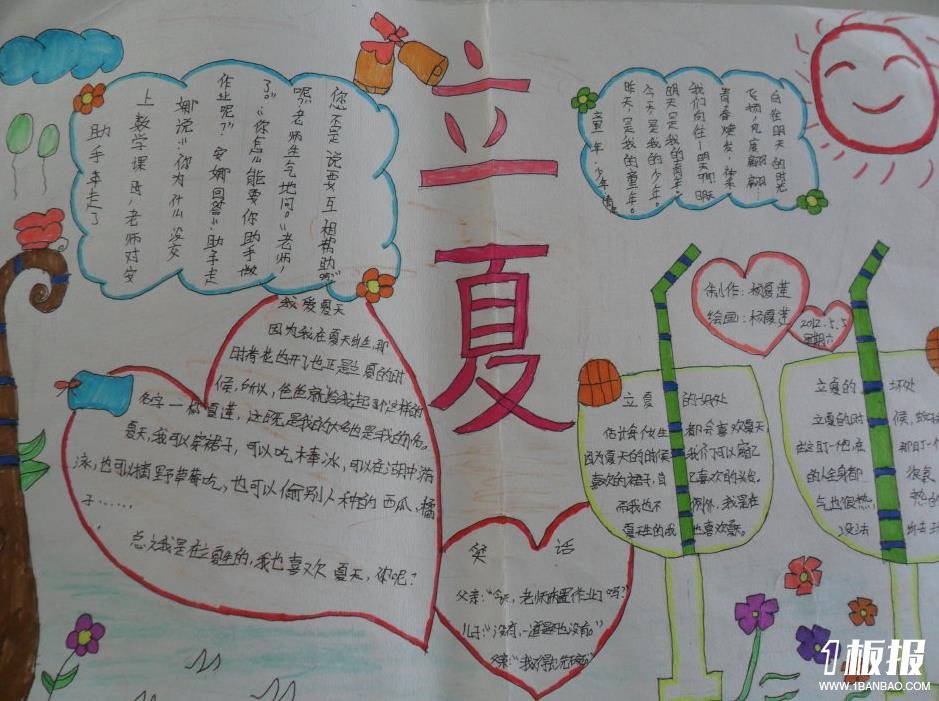 立夏
上数学课时，老师对安
娜说：“你为什么没交
作业呢？”安娜回答：“助手走
了。”“你怎么能要你助手做
呢？”老师生气地问。“老师，
您不是说要互相帮助嘛。”
助手走了
童年·少年
昨天，是我的童年。
今天，是我的少年。
明天是我的青年。
我们向往—明天啊
自在明天的时光
我爱夏天
因为我在夏天出生，那
时荷花也开了，也正是立夏的时
候，所以，爸爸就给我起了个这样的
名字—杨夏莲，这既是我的
夏天，我可以穿裙子，可以吃棒冰，可以在湖中游
泳，也可以摘野草莓吃，也可以偷别人种的西瓜，橘
子……
总之我是在立夏生的，我也喜欢夏天，你呢？
笑话
父亲：“今天，老师布置作业了吗？”
儿子：“没有，一道题也没有。”
制作：杨夏莲
绘画：杨夏莲
2012.5.5
星期六
立夏的好处
估计全女生都会喜欢夏天
因为夏天的时候我们可以穿自己
喜欢的裙子，
而我也不例外，我是在
夏天生的我也喜欢夏天。
立夏的坏处
立夏的时候，
的人全身都 很臭
气也很热，
没法
1板报
WWW.1BANBAO.COM